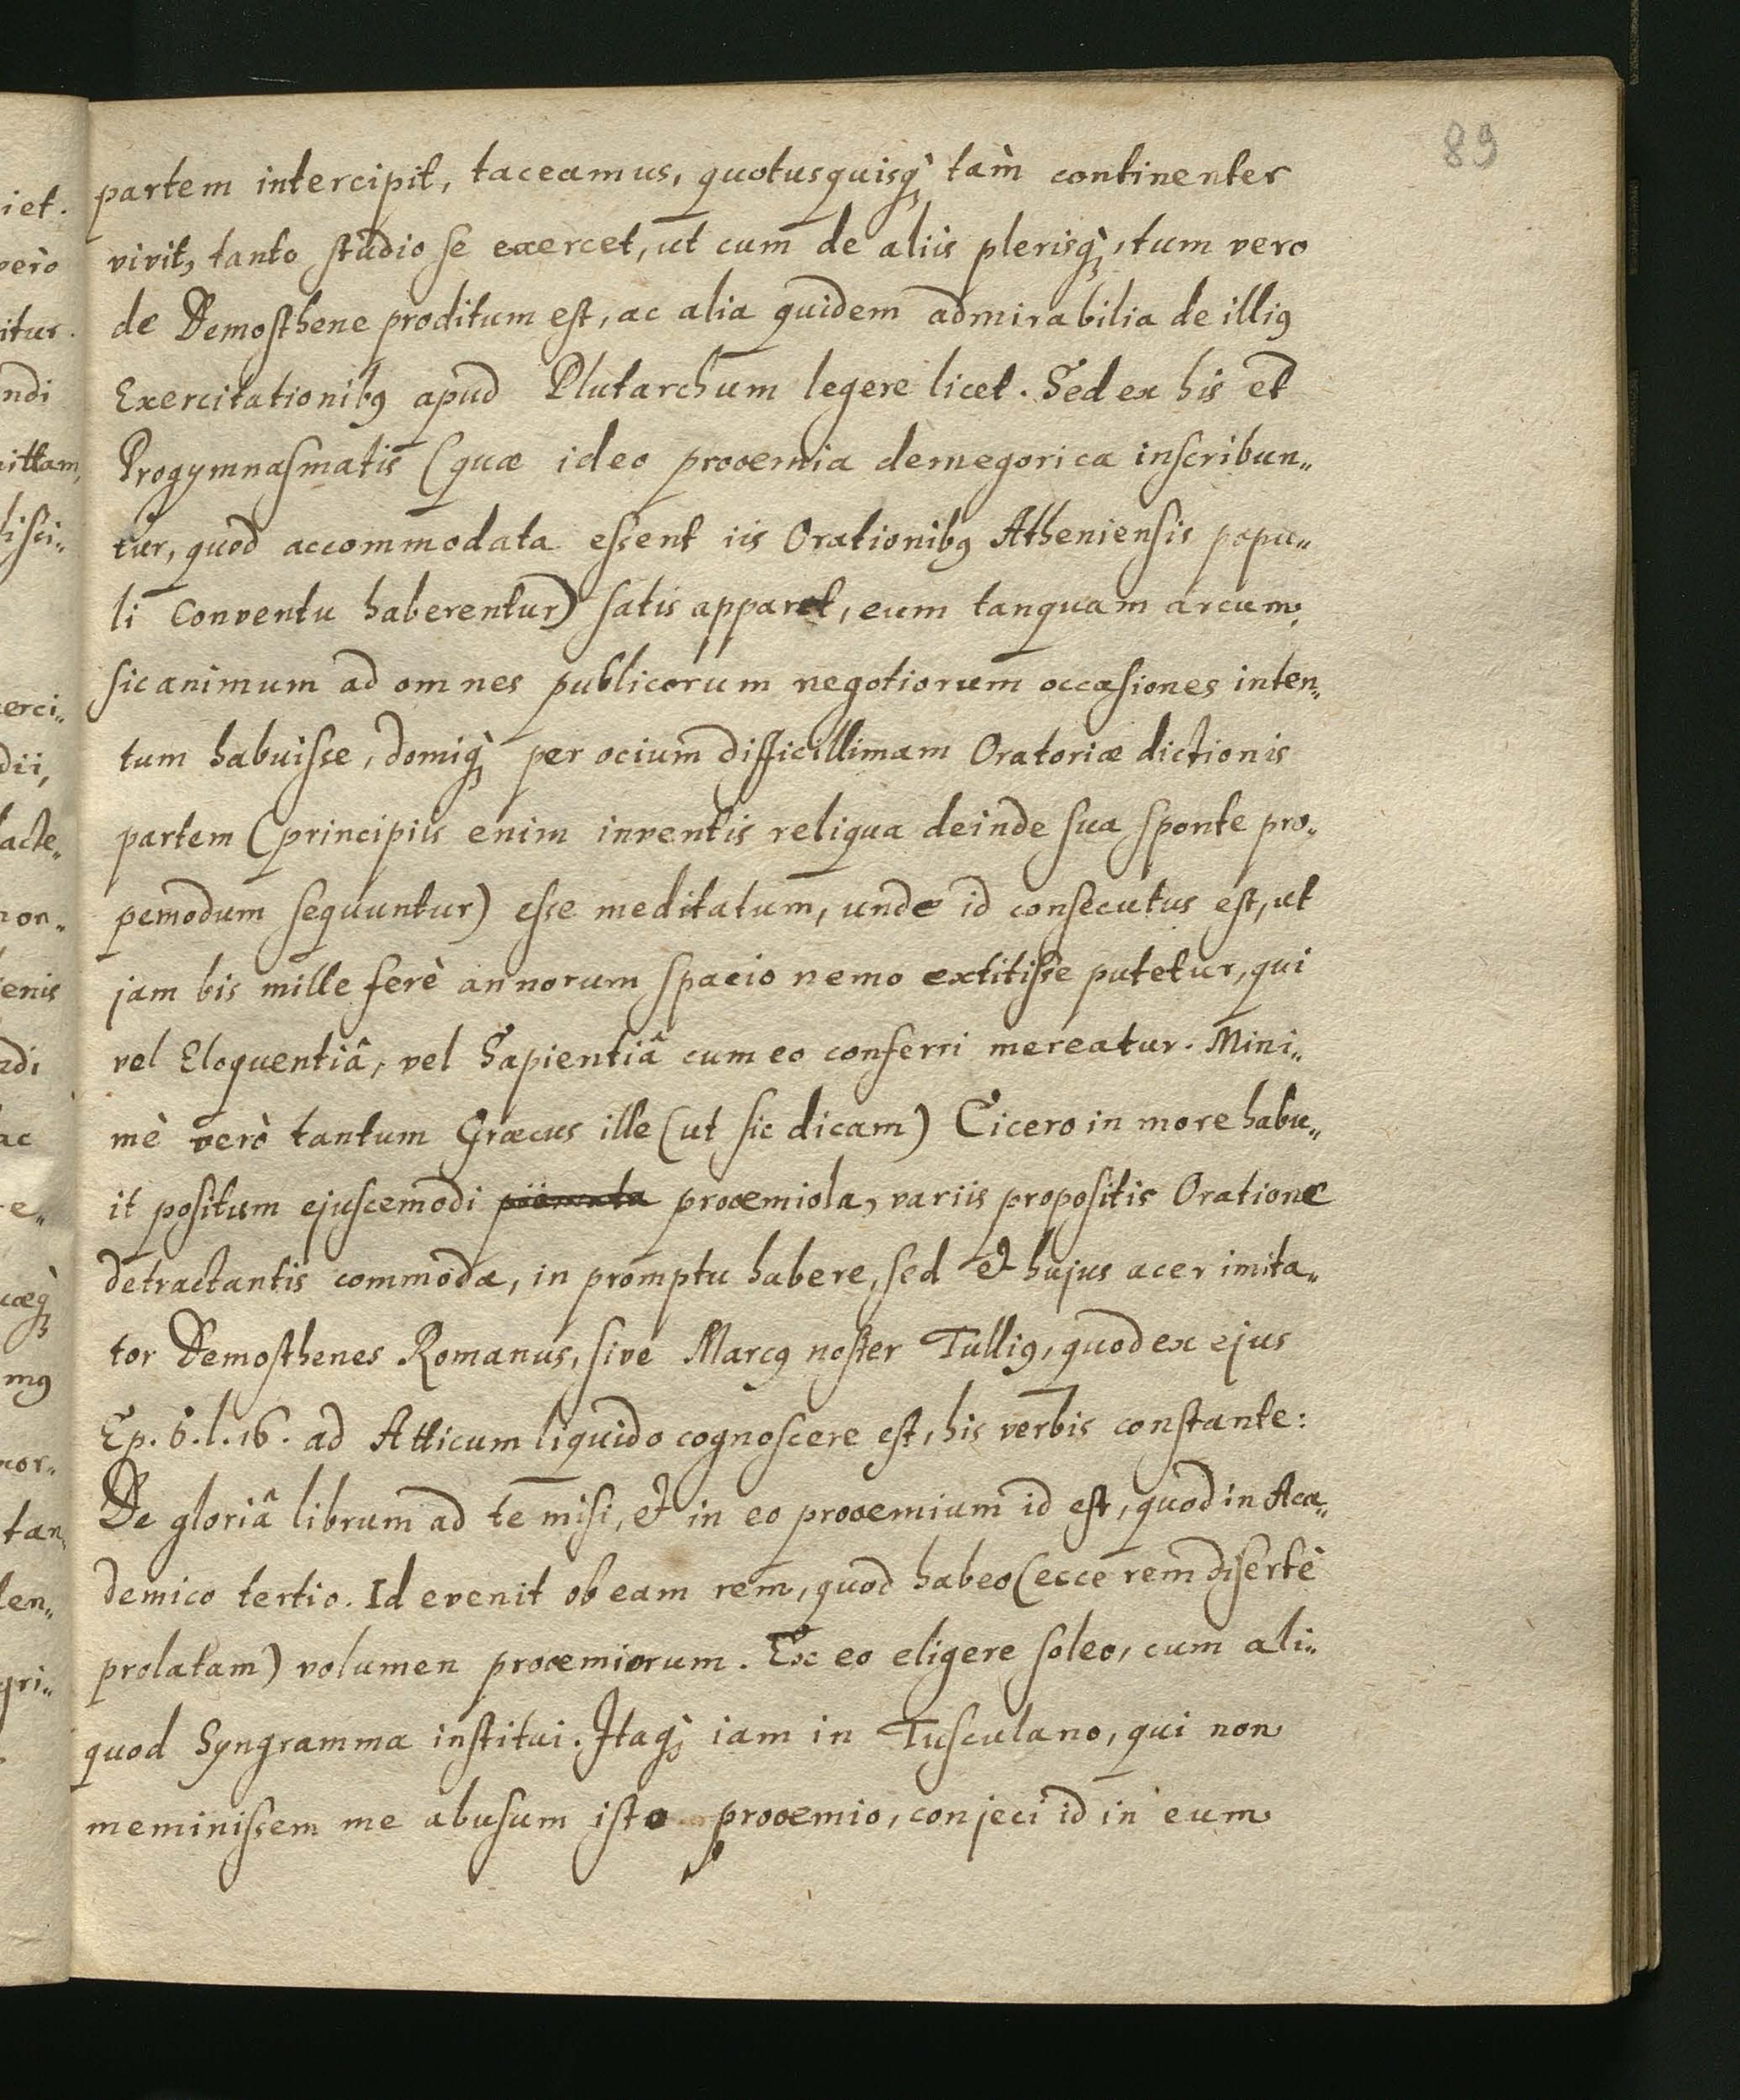 89
partem intercipit, taceamus, quotusquisq; tam̀ continenter
vivit, tanto studio se exercet, ut cum de aliis plerisq;, tum vero
de Demosthene proditum est, ac alia quidem admirabilia de illiꝰ
Exercitationibꝰ apud Plutarchum legere licet. Sed ex his et
Progymnasmatis (quæ ideo proœmia demegorica inscribun„
tur, quod accommodata essent iis Orationibꝰ Atheniensis popu„
li Conventu haberentur) satis apparet, eum tanquam arcum,
sic animum ad omnes publicorum negotiorum occasiones inten„
tum habuisse, domiq; per ocium difficillimam Oratoriæ dictionis
partem (principiis enim inventis reliqua deinde sua sponte pro„
pemodum sequuntur) esse meditatum, unde id consecutus est, ut
jam bis mille ferè annorum spacio nemo extitisse putetur, qui
vel Eloquentiâ, vel Sapientiâ cum eo conferri mereatur. Mini„
mè verò tantum Græcus ille (ut sic dicam) Cicero in more habu„
it positum ejuscemodi proœmiola, variis propositis Oratione
detractantis commoda, in promptu habere, sed & hujus acer imita„
tor Demosthenes Romanus, sive Marcꝰ noster Tulliꝰ, quod ex ejus
Ep. 6. l. 16. ad Atticum liquido cognoscere est, his verbis constante:
De gloriâ librum ad te misi, & in eo proœmium id est, quod in Aca„
demico tertio. Id evenit ob eam rem, quod habeo (ecce rem disertè
prolatam) volumen proœmiorum. Ex eo eligere soleo, cum ali„
quod Syngramma institui. Itaq; iam in Tusculano, qui non
meminissem me abusum isto proœmio, conjeci id in eum
iet.
verò
itur.
ndi
mittam,
disci„
erci„
dii,
acte„
non„
enis
ndi
ac
re„
cæq;
mꝰ
cor„
tan„
len„
gri„